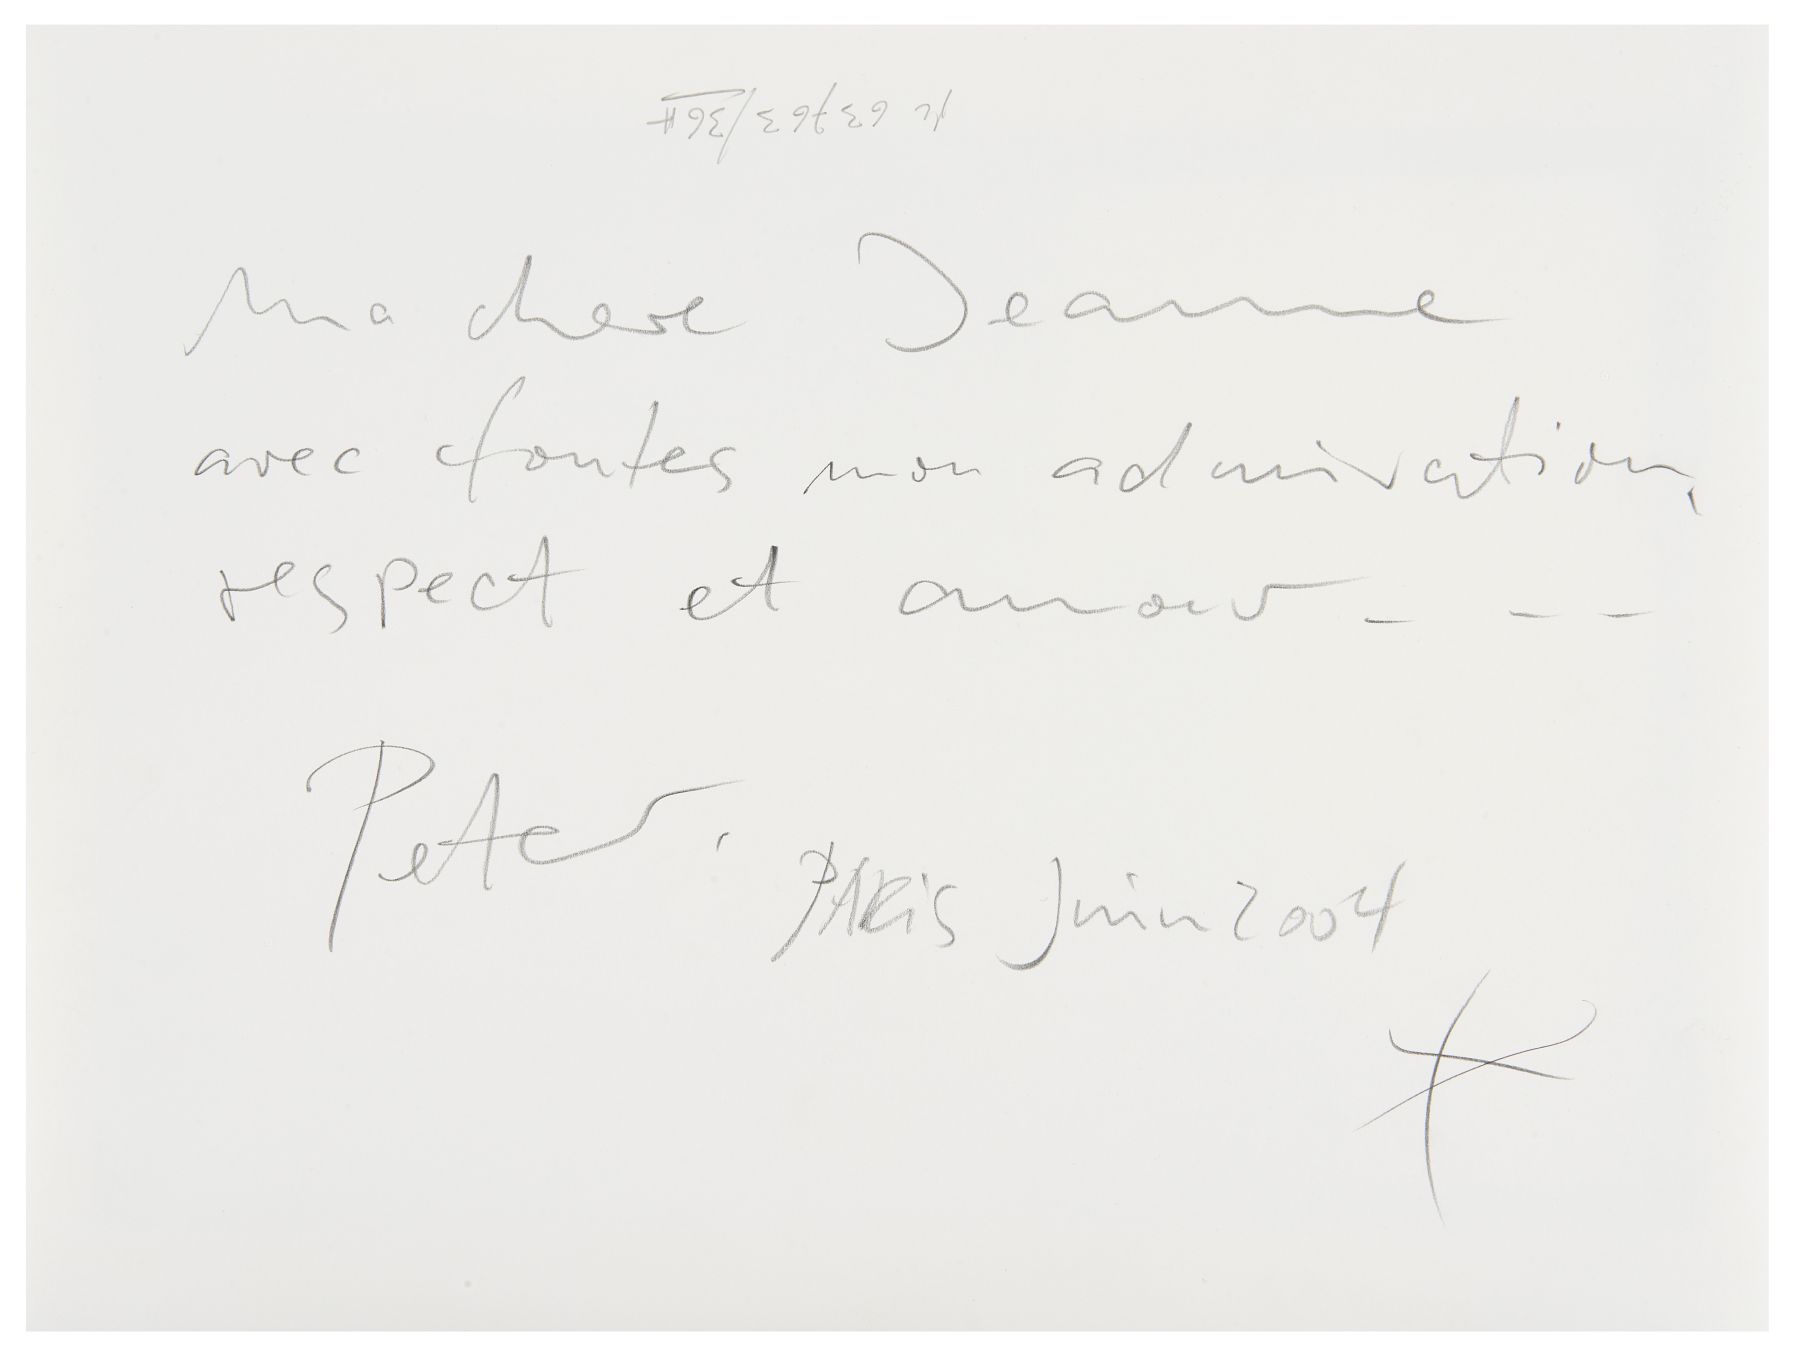 Ma chere Jeanne
avec toutes mon admiration,
respect et amour - - -
Peter.
PARis Juin 2004